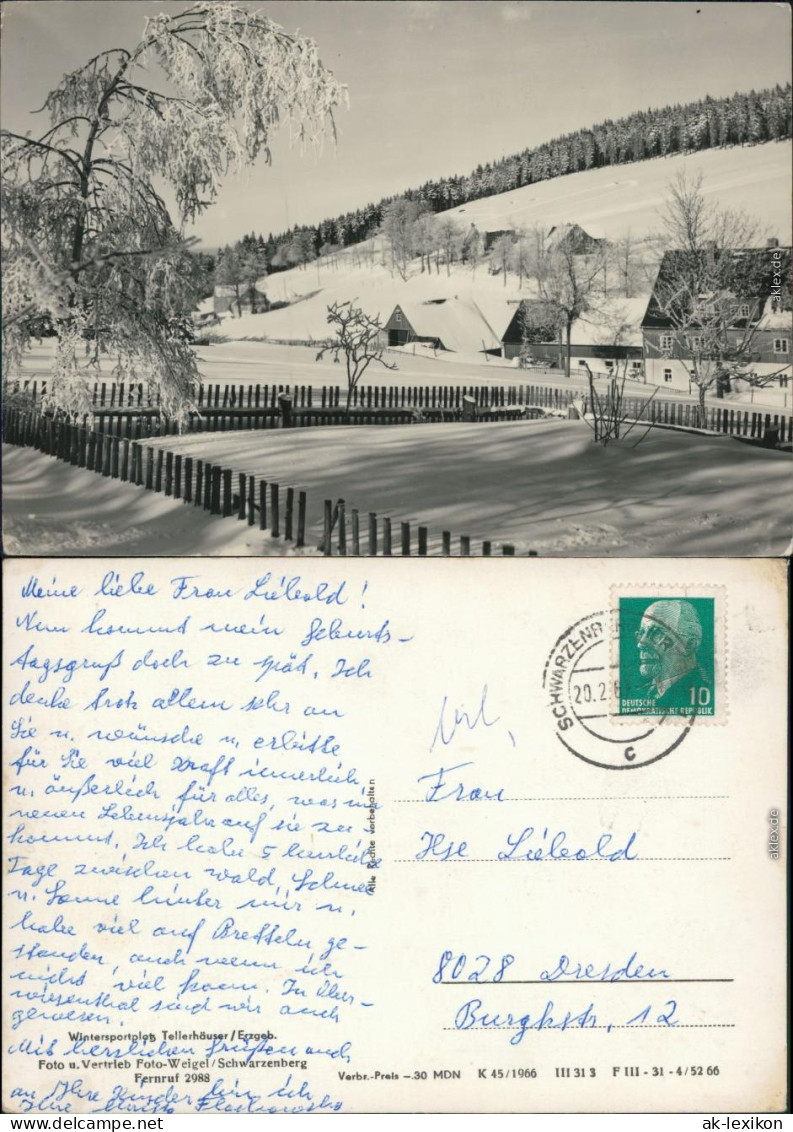 Meine liebe Frau Liebold!
Nun kommt mein Geburts-
tagsgruß doch zu spät. Ich
denke trotz allem sehr an
Sie u. wünsche u. erbitte
für Sie viel Kraft innerlich
u. äußerlich für alles, was im
neuen Lebensjahr auf Sie zu-
kommt. Ich habe 5 herrliche
Tage zwischen Wald, Schnee
u. Sonne hinter mir u.
habe viel auf Bretteln ge-
standen, auch wenn ich
nicht viel kann. In Ober-
wiesenthal sind wir auch
gewesen.
Mit herzlichen Grüßen auch
an Ihre Kinder bin ich
Ihre
Wintersportplatz Tellerhäuser/Erzgeb.
Foto u. Vertrieb Foto-Weigel/Schwarzenberg
Fernruf 2988
Alle Rechte vorbehalten
Verbr.-Preis —.30 MDN K 45/1966 III 31 3 F III - 31 - 4/52 66
SCHWARZENB
20.2.
c
10
DEUTSCHE
DEMOKRATISCHE REPUBLIK
Frau
Ilse Liebold
8028 Dresden
Burgkstr. 12
aklex.de
aklex.de
ak-lexikon.de